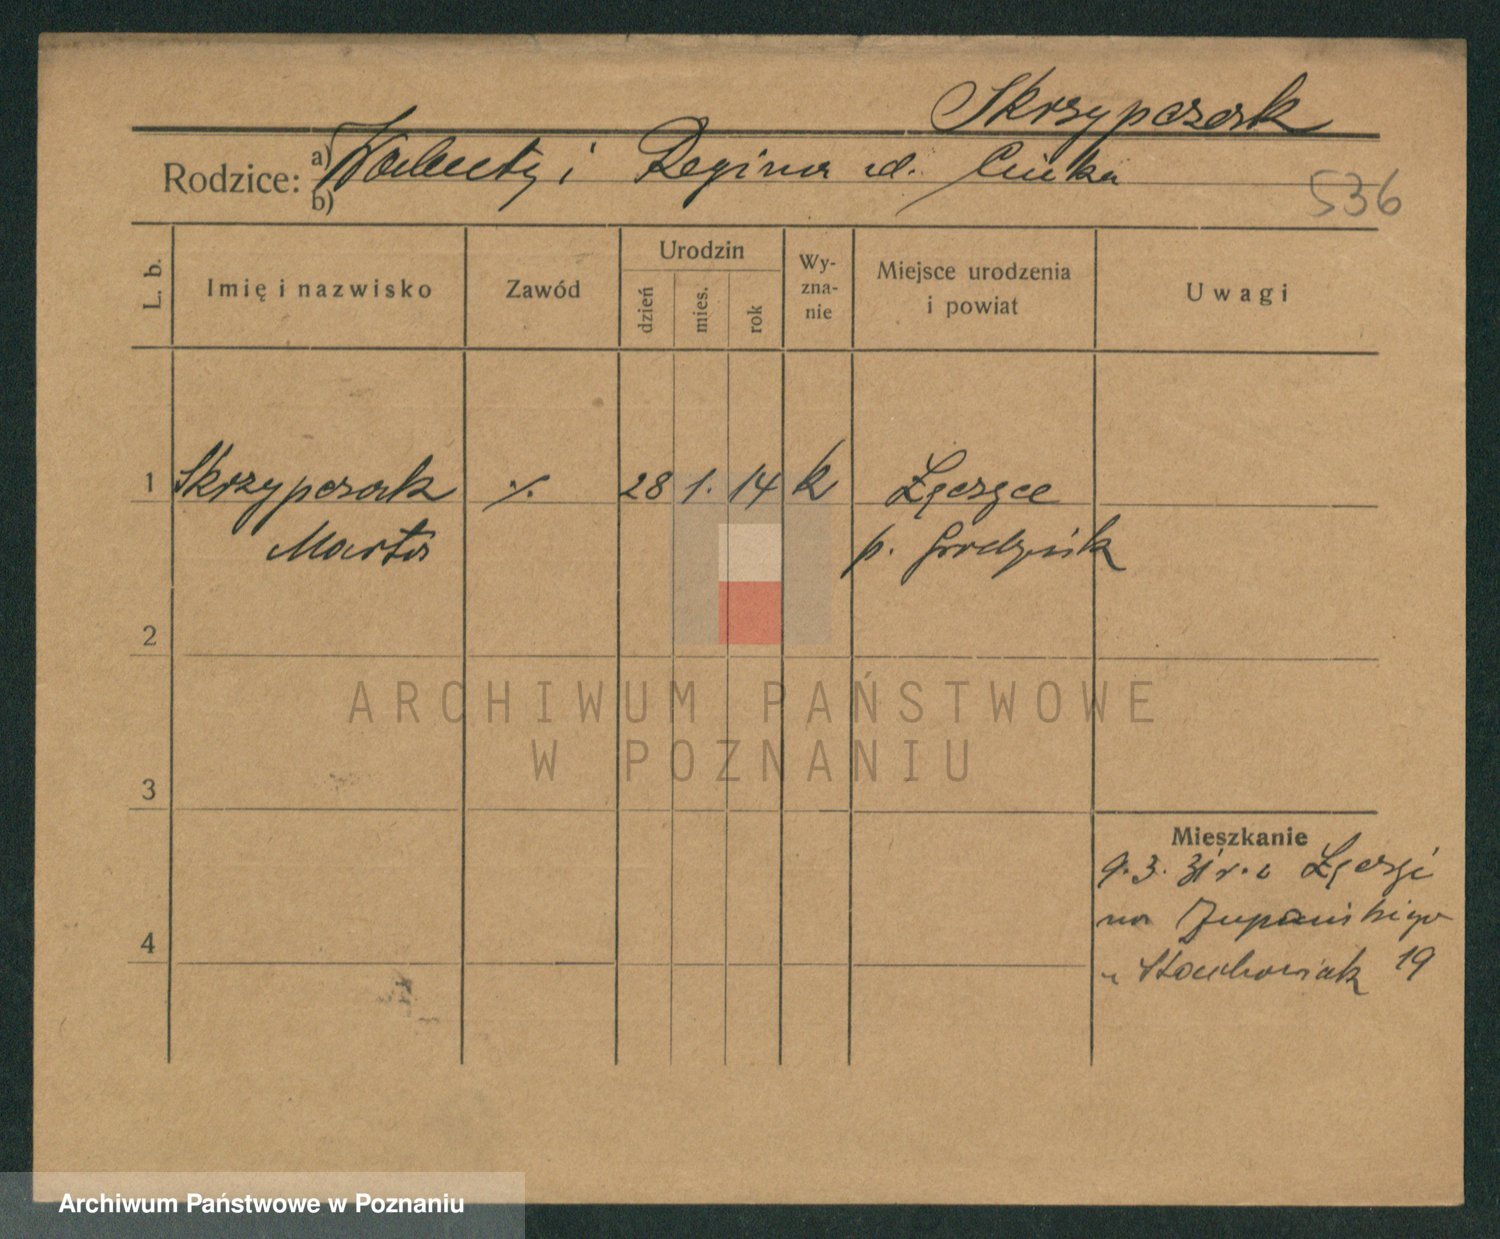 Skrzypczak
Rodzice: a) Walenty i Regina d.
b)
536
L. b.
Imię i nazwisko
Zawód
Urodzin
dzień
mies.
rok
Wy-
zna-
nie
Miejsce urodzenia
i powiat
Uwagi
1 Skrzypczak ./. 28 1. 14 k Łęczyce
Marta p. Grodzisk
2
ARCHIWUM PAŃSTWOWE
W POZNANIU
3
Mieszkanie
9. 3. 31 r. z Łęczyc
na Żupańskiego
4
u Stachowiak 19
Archiwum Państwowe w Poznaniu